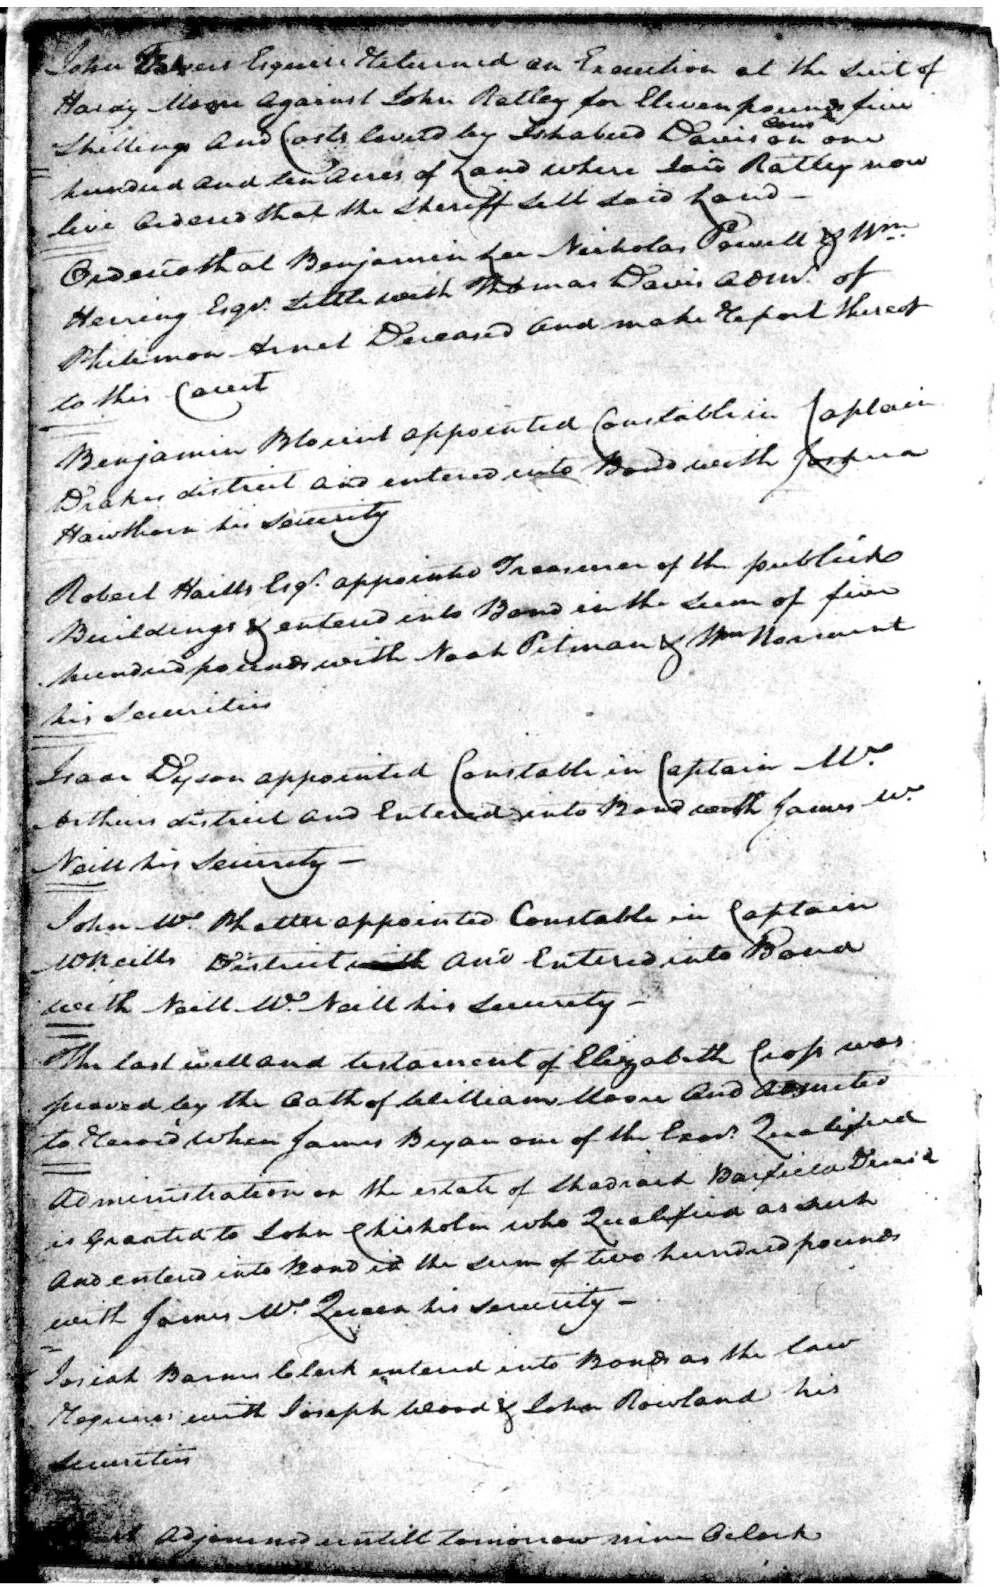 John Esquire Returned an Execution at the Suit of
Hardy Moore Against John Ratley for Eleven pounds five
Shillings And Costs levied by Ishabud Davis Cons. on one
hundred and ten Acres of Land where Said Ratley now
live Ordered that the Sheriff Sell Said Land —
Ordered that Benjamin Lee Nicholas Powell & Wm.
Herring Esqr. Settle with Thomas Davis Admr. of
Philemon Deceased And make Report thereof
to this Court
Benjamin Blount appointed Constable in Captain
Drakes district And entered into Bond with Joshua
Hawthorn his Security
Robert Haills Esqr. appointed Treasurer of the publick
Buildings & entered into Bond in the Sum of five
hundred pounds with Noah Pitman & Wm
his Securities
Isaac Dyson appointed Constable in Captain Mc.
Arthurs district And Entered into Bond with James Mc.
Neill his Security —
John Mc. Phatter appointed Constable in Captain
McNeills District with And Entered into Bond
with Neill Mc. Neill his Security —
The last will and testament of Elizabeth Crofs was
proved by the Oath of William Moore And Admited
to Record When James Bryan one of the Exors. Qualified
Administration on the estate of Shadrach Barfield Decs'd
is Granted to John Chisholm who Qualified as such
And entered into Bond in the Sum of two hundred pounds
with James Mc. Queen his Security —
Josiah Barnes Clerk entered into Bonds as the law
Requires with Joseph Wood & John Rowland his
Securities
Adjourned untill tomorrow nine Oclock